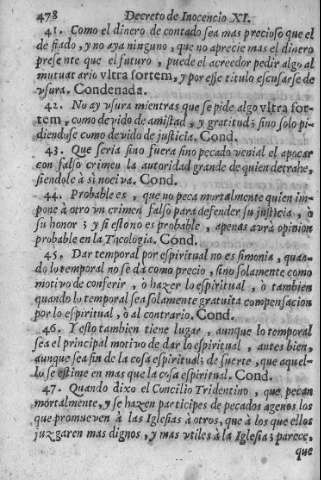 478 Decreto de Inocencio XI.
41. Como el dinero de contado sea mas precioso que el
de fiado, y no aya ninguno, que no aprecie mas el dinero
presente que el futuro, puede el acreedor pedir algo al
mutuatario vltra sortem, y por esse titulo escusarse de
vsura. Condenada.
42. No ay vsura mientras que se pide algo vltra sor-
tem, como devido de amistad, y gratitud; sino solo pi-
diendose como devido de justicia. Cond.
43. Que seria sino fuera sino pecado venial el apocar
con falso crimen la autoridad grande de quien detrahe,
siendole à si nociva. Cond.
44. Probable es, que no peca mortalmente quien im-
pone à otro vn crimen falso para defender su justicia, ò
su honor; y si esto no es probable, apenas avrà opinion
probable en la Teologia. Cond.
45. Dar temporal por espiritual no es simonia, quan-
do lo temporal no se dà como precio, sino solamente como
motivo de conferir, ò hazer lo espiritual, ò tambien
quando lo temporal sea solamente gratuita compensacion
por lo espiritual, ò al contrario. Cond.
46. Y esto tambien tiene lugar, aunque lo temporal
sea el principal motivo de dar lo espiritual, antes bien,
aunque sea fin de la cosa espiritual; de suerte, que aquel-
lo se estime en mas que la cosa espiritual. Cond.
47. Quando dixo el Concilio Tridentino, que pecan
mortalmente, y se hazen participes de pecados agenos los
que promueven à las Iglesias à otros, que à los que ellos
juzgaren mas dignos, y mas vtiles à la Iglesia; parece,
que